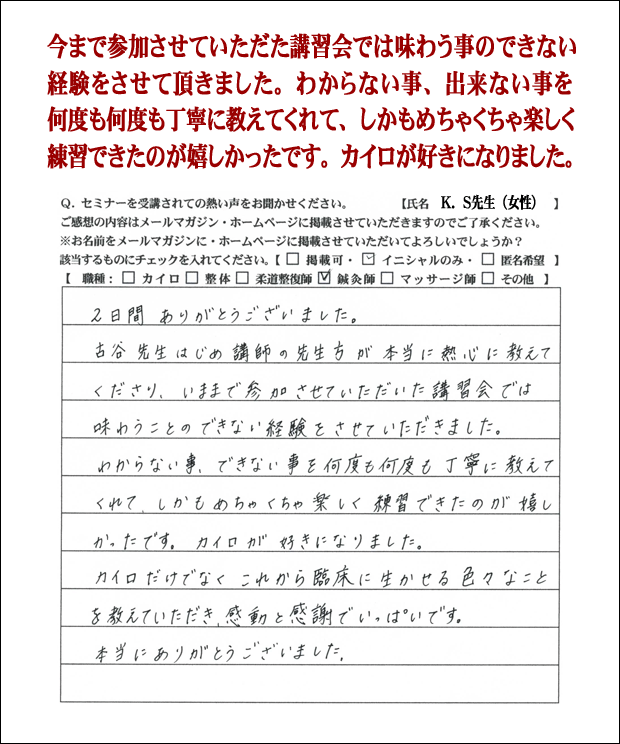 今まで参加させていただた講習会では味わう事のできない
経験をさせて頂きました。わからない事、出来ない事を
何度も何度も丁寧に教えてくれて、しかもめちゃくちゃ楽しく
練習できたのが嬉しかったです。カイロが好きになりました。
Q. セミナーを受講されての熱い声をお聞かせください。 【氏名 K. S先生（女性） 】
ご感想の内容はメールマガジン・ホームページに掲載させていただきますのでご了承ください。
※お名前をメールマガジンに・ホームページに掲載させていただいてよろしいでしょうか？
該当するものにチェックを入れてください。【 □ 掲載可・ ☑ イニシャルのみ・ □ 匿名希望 】
【 職種：□ カイロ □ 整体 □ 柔道整復師 ☑ 鍼灸師 □ マッサージ師 □ その他 】
2日間 ありがとうございました。
古谷先生はじめ講師の先生方が本当に熱心に教えて
くださり、いままで参加させていただいた講習会では
味わうことのできない経験をさせていただきました。
わからない事、できない事を何度も何度も丁寧に教えて
くれて、しかもめちゃくちゃ楽しく練習できたのが嬉し
かったです。カイロが好きになりました。
カイロだけでなくこれから臨床に生かせる色々なこと
を教えていただき、感動と感謝でいっぱいです。
本当にありがとうございました。